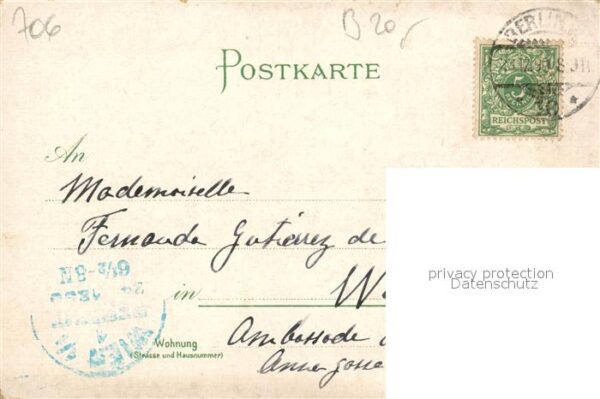 706
B 20
POSTKARTE
BERLIN
5
REICHSPOST
An
Mademoiselle
Fernanda Gutiérrez de
in W
Wohnung
(Strasse und Hausnummer)
Ambassade
6½-8N
WIEN
privacy protection
Datenschutz